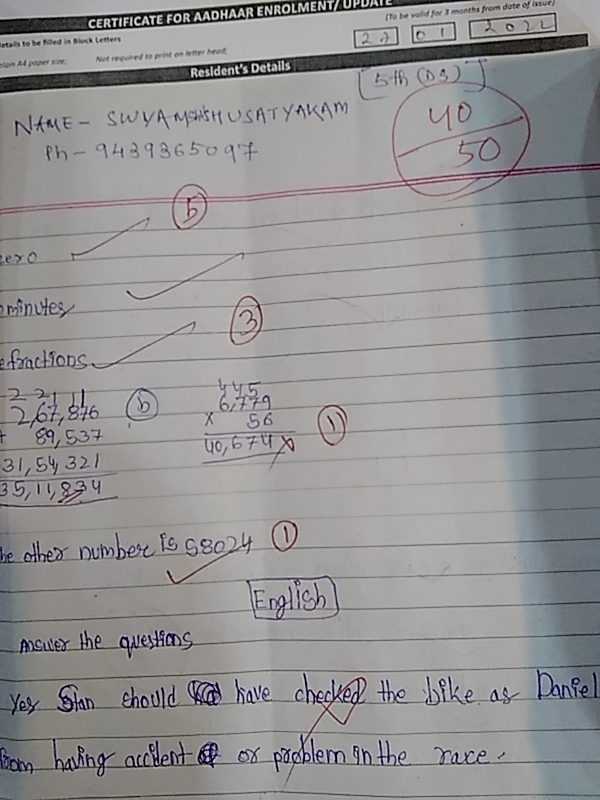 CERTIFICATE FOR AADHAAR ENROLMENT/ UPDATE
(To be valid for 3 months from date of issue)
etails to be filled in Block Letters
27 01 2022
plain A4 paper size; Not required to print on letter head;
Resident's Details
[5th (DS)]
NAME - SWYAMSHUSATYAKAM
40
50
Ph - 9439365097
5
zero
minutes
3
fractions
2 21 11
2,67,876
+ 89,537
31,54,321
35,11,834
b
445
6,779
x 56
40,674
1
he other number is 58024 1
English
Answer the questions
Yes Stan should have checked the bike as Daniel
from having accident or problem in the race.